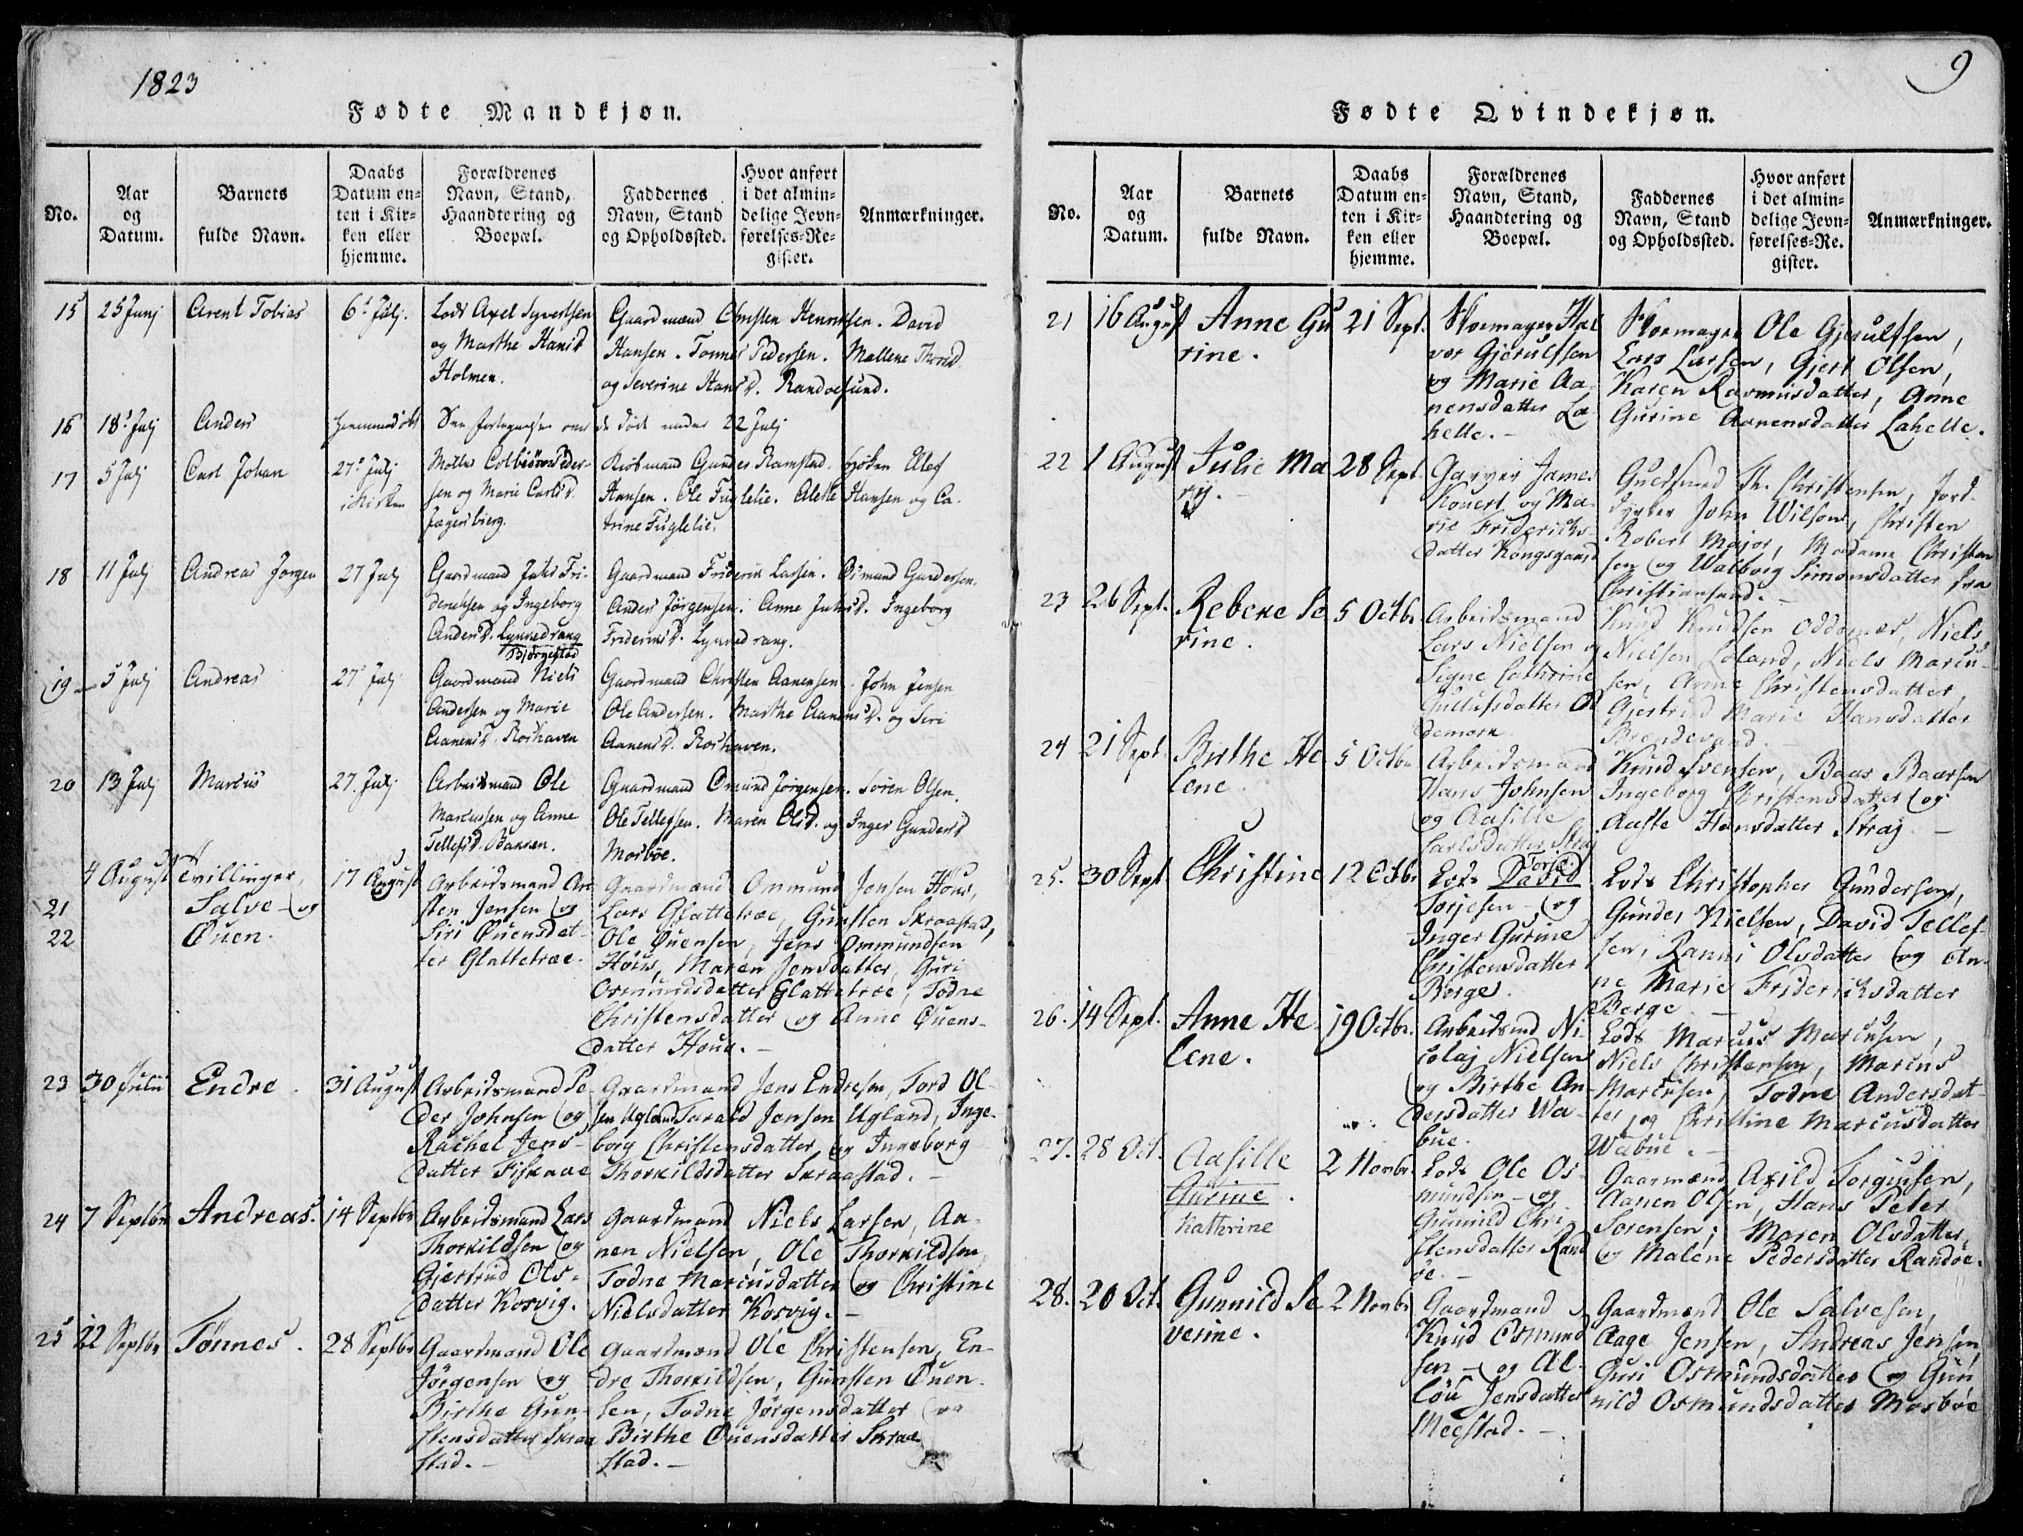 1823
Fødte Mandkjøn.
No.
Aar
og
Datum.
Barnets
fulde Navn.
Daabs
Datum en-
ten i Kir-
ken eller
hjemme.
Forældrenes
Navn, Stand,
Haandtering og
Boepæl.
Faddernes
Navn, Stand
og Opholdssted.
Hvor anført
i det almin-
delige Jevn-
førelses-Re-
gister.
Anmærkninger.
15 25 Junj Arent Tobias 6t Julj.
Lods Axel Syvertsen
og Marthe Hansd
Holmen.
Gaardmænd Christen Henriksen. David
Hansen. Tønnes Pedersen. Mallene
og Severine Hansd. Randøesund.
16 18t Julj Anders
døde under 22 Julj
17 5 Julj Carl Johan 27t Julj
i Kirken
Peder-
sen og Marie Carlsd.
Jægersbierg.
Kiøbmand Gunder Ramstad. Ellef
Hansen. Ole Fuglelie. Hansen og Ca-
trine Fuglelie.
18 11 Julj Andreas Jørgen 27 Julj
Gaardmand Jahs Fri-
derichsen og Ingeborg
Andersd. Lynnedrang
Bjørgestad
Gaardmænd Friderik Larsen. Osmund Gundersen.
Anders Jørgensen. Anne Jahsd. Ingeborg
Frideriksd. Lynnedrang.
19 5 Julj Andreas 27 Julj
Gaardmand Niels
Andersen og Marie
Aanensd. Roshaven
Gaardmænd Christen Aanensen. John Jensen
Ole Andersen. Marthe Aanensd. og Siri
Aanensd. Roshaven.
20 13 Julj Marcus 27. Julj
Arbeidsmand Ole
Marcussen og Anne
Tellefsd. Bakken.
Gaardmænd Omund Jørgensen. Søren Olsen.
Ole Tellefsen. Maren Olsd. og Inger Gundersd
Mosbøe.
4 August Tvillinger, 17 August
21 Salve og
22 Ouen.
Arbeidsmand An-
sten Jensen og
Siri Ouensdat-
ter Glattetræe.
Gaardmænd Ommund Jensen Høus,
Lars Glattetræe, Gunsten Skraastad,
Ole Ouensen, Jens Ommundsen
Høius, Maren Jensdatter, Guri
Osmundsdatter Glattetræe, Todne
Christensdatter og Anne Ouens-
datter Houe.
23 30 Julii Endre. 31 August
Arbeidsmand Pe-
der Johnsen og
Rachel Jens-
datter Fiskaae
Gaardmænd Jens Endresen, Tord Ol-
sen Ugland Tarald Jensen Ugland, Inge-
borg Christensdatter og Ingeborg
Thorkildsdatter Skraastad.
24 7 Septbr Andreas. 14 Septbr
Arbeidsmand Lars
Thorkildsen og
Gjertrud Ols-
datter Kosvig.
Gaardmænd Niels Larsen, Aa-
nen Nielsen, Ole Thorkildsen,
Todne Marcusdatter og Christine
Nielsdatter Kosvig.
25 12 Septbr Tønnes. 28 Septbr
Gaardmand Ole
Jørgensen og
Birthe Gun-
stensdatter Skraa-
stad.
Gaardmænd Ole Christensen, En-
dre Thorkildsen, Gunsten Ouen-
sen, Todne Jørgensdatter og
Birthe Ouensdatter Skraa-
stad.
9
Fødte Qvindekjøn.
No.
Aar
og
Datum.
Barnets
fulde Navn.
Daabs
Datum en-
ten i Kir-
ken eller
hjemme.
Forældrenes
Navn, Stand,
Haandtering og
Boepæl.
Faddernes
Navn, Stand
og Opholdssted.
Hvor anført
i det almin-
delige Jevn-
førelses-Re-
gister.
Anmærkninger.
21 16 August Anne Gu- 21 Sept.
rine.
Skomager Hal-
vor Gjerulfsen
og Marie Aa-
nensdatter La-
helle.
Skomager Ole Gjerulfsen,
Lars Larsen, Gjert Olsen,
Karen Rasmusdatter, Anne
Gurine Aanensdatter Lahelle.
22 1 August Julie Ma- 28 Sept.
ry.
Garver James
og Ma-
rie Friderichs-
datter Kongsgaard
Christensen, Jord-
dyrker John Wilson, Christen
Robert Major, Madame Christen-
sen og Walborg Simonsdatter fra
Christiansand.
23 26 Sept. Rebekke Se- 5 Octbr
rine.
Arbeidsmand
Lars Nielsen og
Signe Cathrine
Gullufsdatter Od-
demork.
Knud Knudsen Oddernæs, Niels
Nielsen Loland, Niels Marcu-
sen, Anne Christensdatter,
Gjertrud Marie Hansdatter
24 21 Sept Birthe He- 5 Octbr
lene.
Arbeidsmand
Hans Johnsen
og Aasille
Carlsdatter Straj
Knud Svensen, Baar Baarsen
Ingeborg Christensdatter og
Aaste Hansdatter Straj.
25. 30 Sept Christine 12 Octbr.
Torje
Lods David
Torjesen og
Inger Gurine
Christensdatter
Berge.
Lods Christopher Gundersen,
Gunder Nielsen, David Tellef-
sen, Ranni Olsdatter og An-
ne Marie Frideriksdatter
Berge
26. 14 Sept. Anne He- 19 Octbr.
lene.
Arbeidsmd Ni-
colaj Nielsen
og Birthe An-
dersdatter Wa-
bue.
Lods Marcus Marcusen,
Niels Christensen, Marcus
Marcusen, Todne Andersdat-
ter, og Christine Marcusdatter
Wabue.
27. 28 Oct. Aasille 2 Novbr.
Gurine.
Kathrine
Lods Ole Os-
mundsen og
Gunnild Chri-
stensdatter Rand-
øe.
Gaarmænd Axild Torgiusen,
Aanen Olsen, Hans Peter
Sørensen, Maren Olsdatter,
og Malene Pedersdatter Randøe.
28. 20 Oct. Gunnild Se- 2 Novbr
verine.
Gaardmand
Knud Osmund-
sen og Al-
lou Jensdatter
Meestad.
Gaardmænd Ole Salvesen,
Aage Jensen, Andreas Jensen,
Guri Osmundsdatter og Gun-
nild Osmundsdatter Mosbøe